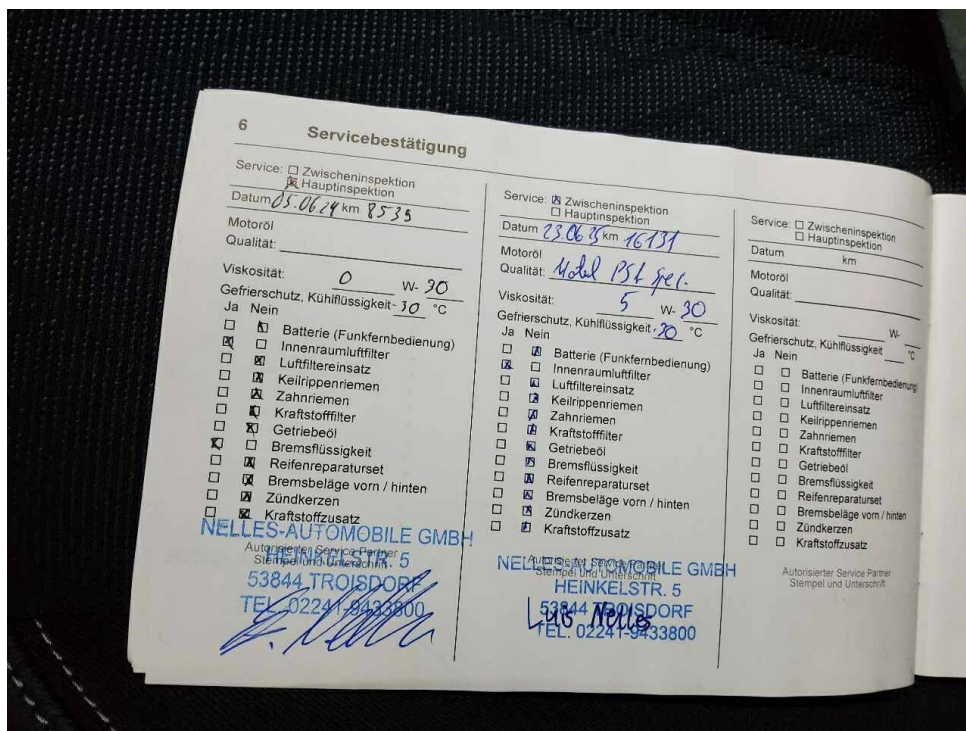 6 Servicebestätigung
Service: Zwischeninspektion
Hauptinspektion
Datum 05.06.24 km 8539
Motoröl
Qualität:
Viskosität: 0 W- 30
Gefrierschutz, Kühlflüssigkeit - 30 °C
Ja Nein
Batterie (Funkfernbedienung)
Innenraumluftfilter
Luftfiltereinsatz
Keilrippenriemen
Zahnriemen
Kraftstofffilter
Getriebeöl
Bremsflüssigkeit
Reifenreparaturset
Bremsbeläge vorn / hinten
Zündkerzen
Kraftstoffzusatz
Autorisierter Service Partner
Stempel und Unterschrift
NELLES-AUTOMOBILE GMBH
HEINKELSTR. 5
53844 TROISDORF
TEL. 02241-9433800
Service: Zwischeninspektion
Hauptinspektion
Datum 23.06.25 km 16131
Motoröl
Qualität:
Viskosität: 5 W- 30
Gefrierschutz, Kühlflüssigkeit - 30 °C
Ja Nein
Batterie (Funkfernbedienung)
Innenraumluftfilter
Luftfiltereinsatz
Keilrippenriemen
Zahnriemen
Kraftstofffilter
Getriebeöl
Bremsflüssigkeit
Reifenreparaturset
Bremsbeläge vorn / hinten
Zündkerzen
Kraftstoffzusatz
Autorisierter Service Partner
Stempel und Unterschrift
NELLES-AUTOMOBILE GMBH
HEINKELSTR. 5
53844 TROISDORF
Luis Nelles
TEL. 02241-9433800
Service: Zwischeninspektion
Hauptinspektion
Datum km
Motoröl
Qualität:
Viskosität: W-
Gefrierschutz, Kühlflüssigkeit °C
Ja Nein
Batterie (Funkfernbedienung)
Innenraumluftfilter
Luftfiltereinsatz
Keilrippenriemen
Zahnriemen
Kraftstofffilter
Getriebeöl
Bremsflüssigkeit
Reifenreparaturset
Bremsbeläge vorn / hinten
Zündkerzen
Kraftstoffzusatz
Autorisierter Service Partner
Stempel und Unterschrift